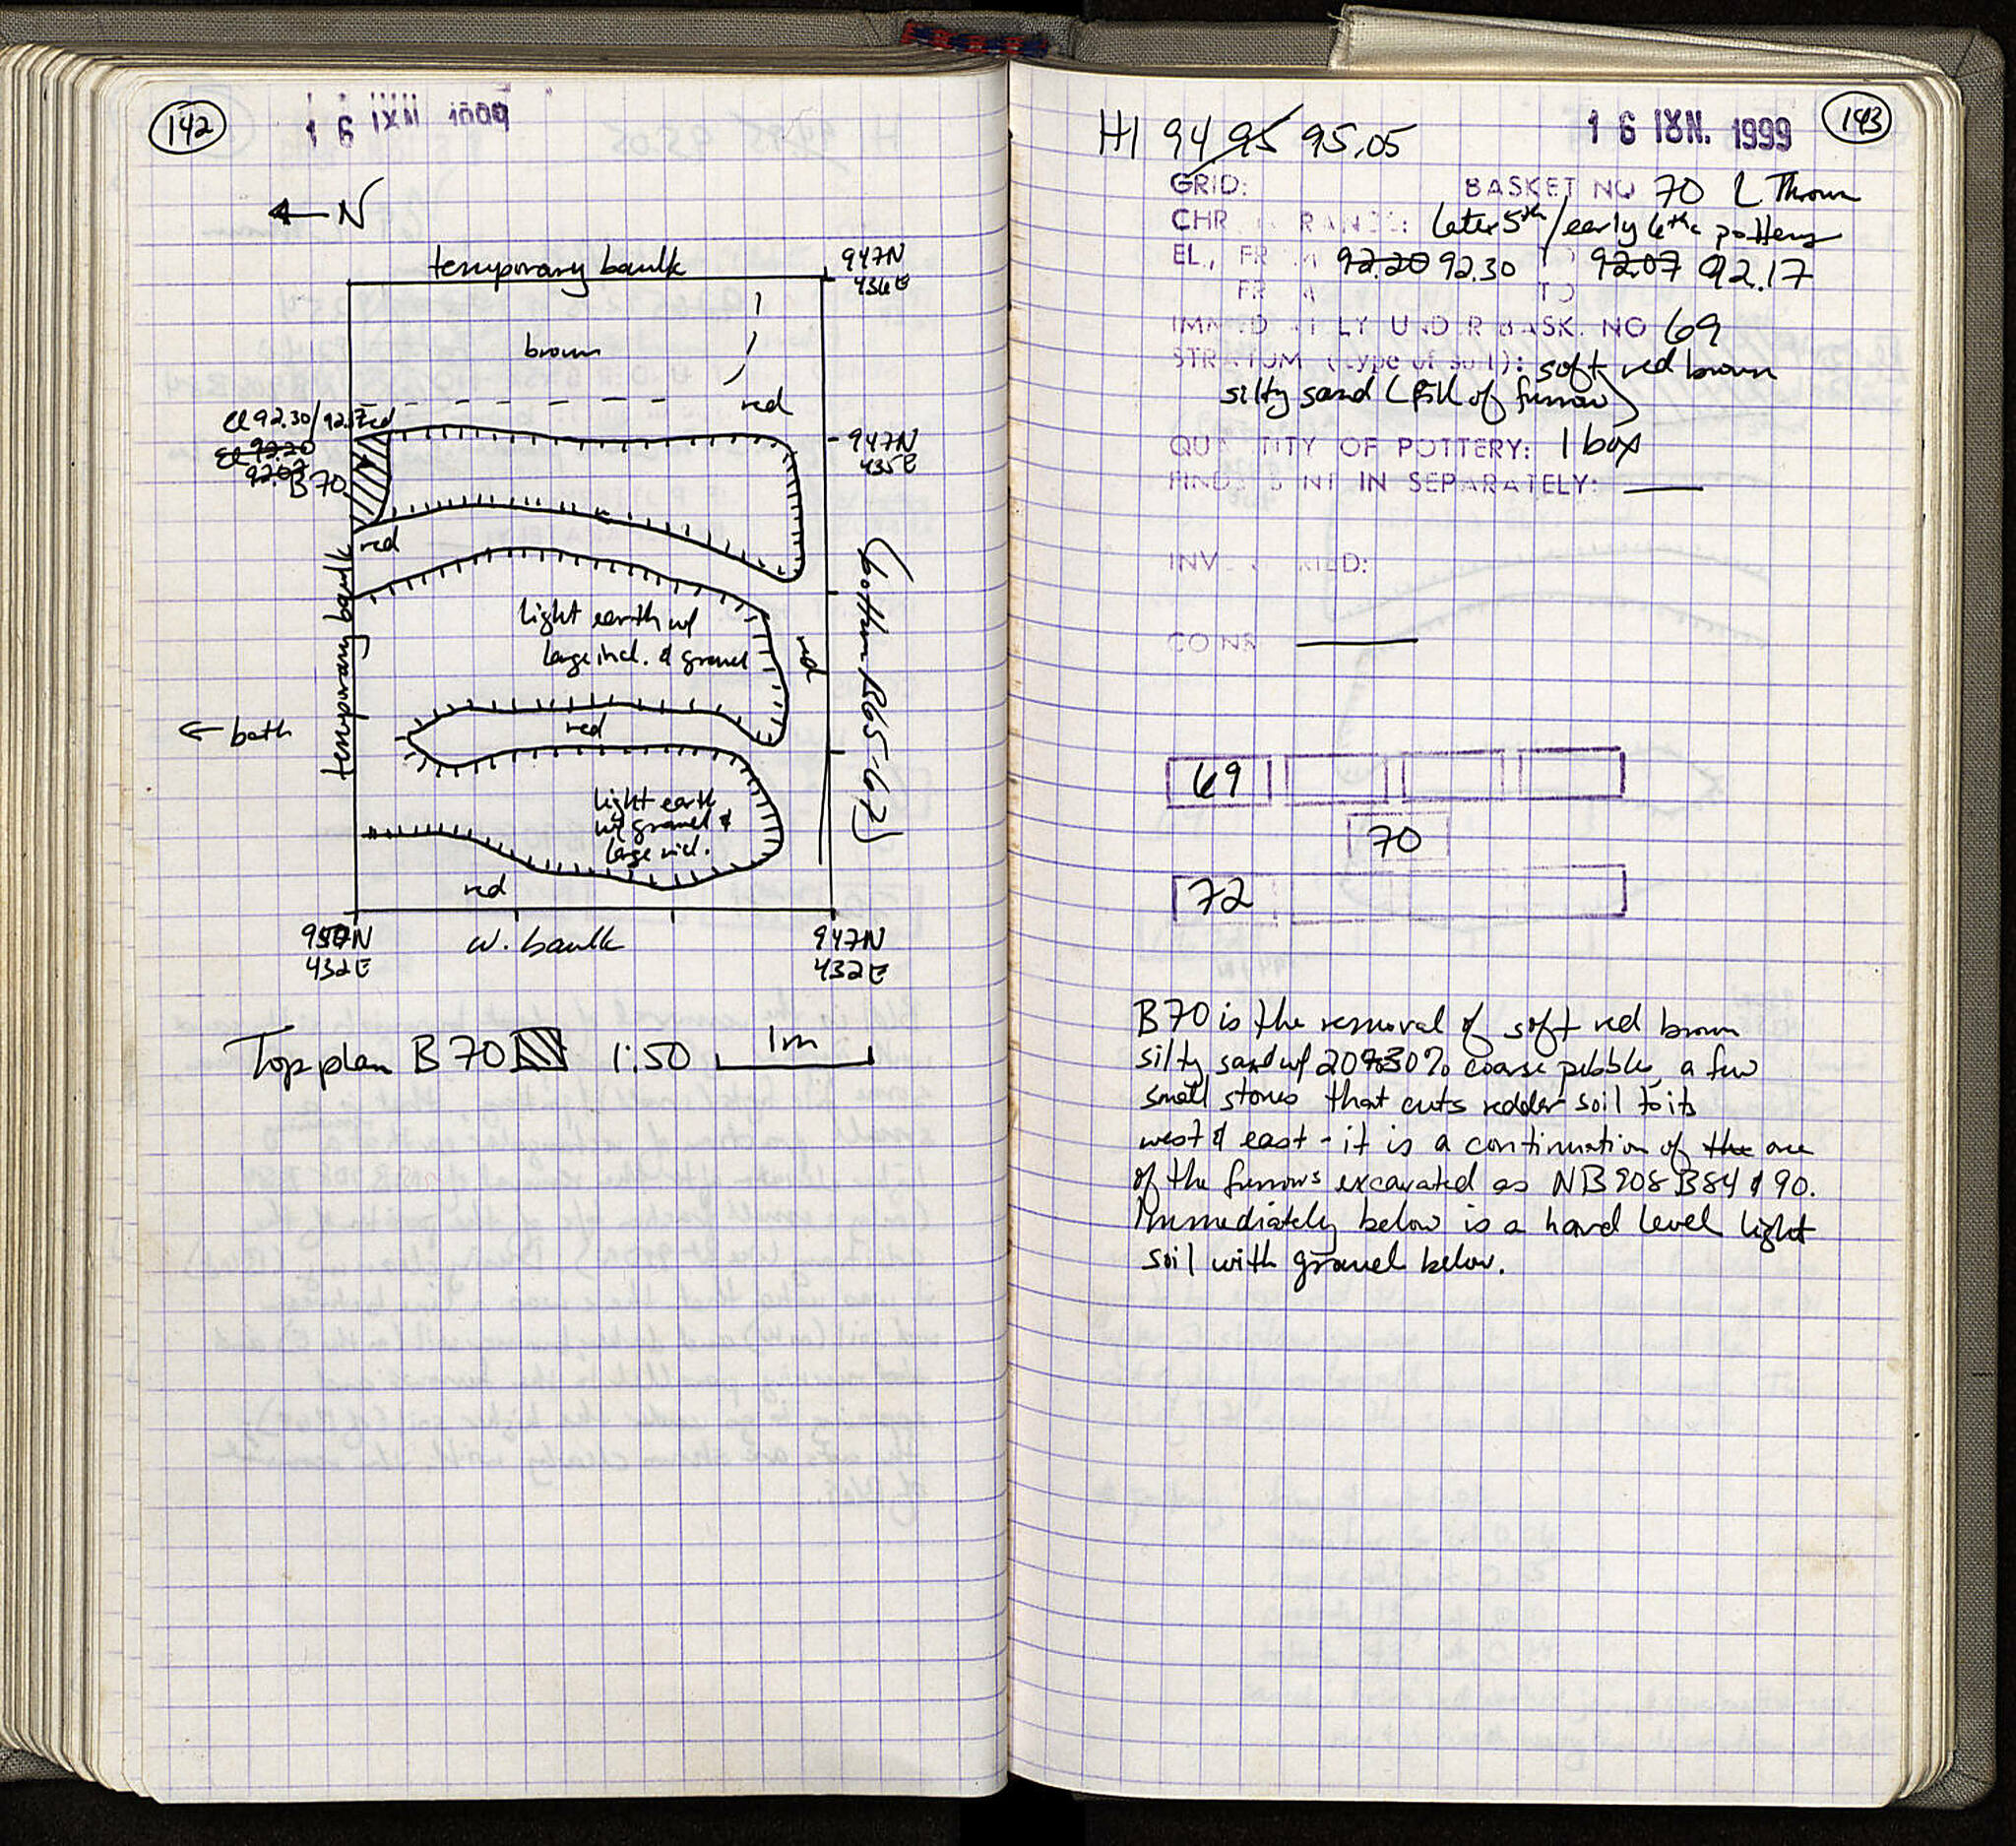 142
16 IXII 1999
← N
temporary baulk
947N
436E
brown
red
El 92.30/92.17
red
El 92.20
92.07
B70
947N
435E
red
temporary baulk
light earth w/
large incl. & gravel
red
(bottom B65-67)
← bath
red
light earth
w/ gravel &
large incl.
red
950N
432E
w. baulk
947N
432E
Top plan B70 1:50 1m
143
16 IXN. 1999
H1 94 95 95.05
GRID: BASKET NO 70 L Thrown
CHR RAN : later 5th/early 6thc pottery
EL., FR M 92.20 92.30 TO 92.07 92.17
FR M TO
IMM D T LY U D R BASK. NO 69
STRATUM (type of soil): soft red brown
silty sand (fill of furrow)
QUA TITY OF POTTERY: 1 box
FINDS S NT IN SEPARATELY: —
INV RIED:
CONS —
69
70
72
B70 is the removal of soft red brown
silty sand w/ 20%30% coarse pebbles, a few
small stones that cuts redder soil to its
west & east - it is a continuation of the one
of the furrows excavated as NB908 B84 & 90.
Immediately below is a hard level light
soil with gravel below.